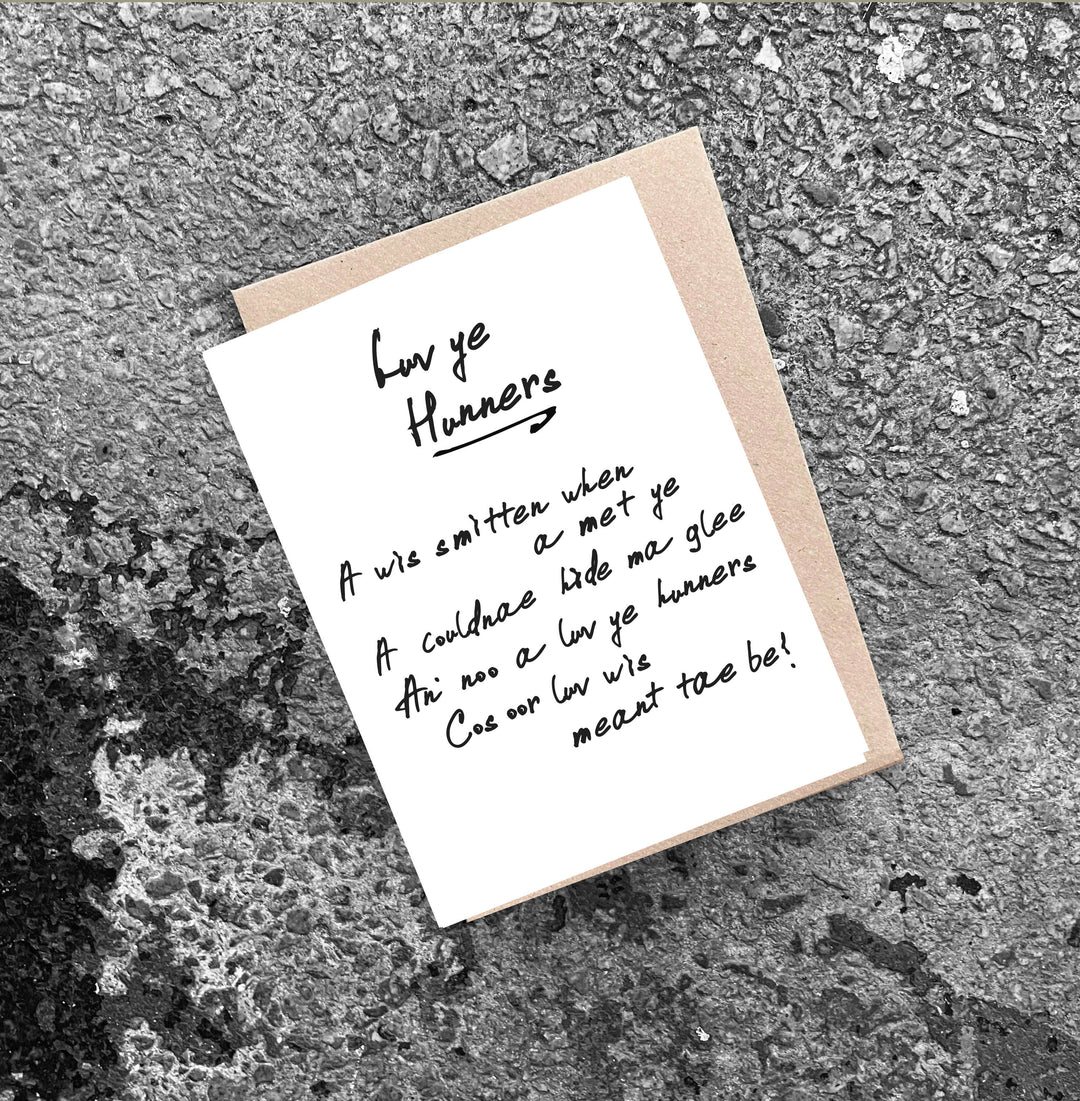 Luv ye
Hunners
A wis smitten when
a met ye
A couldnae hide ma glee
An' noo a luv ye hunners
Cos oor luv wis
meant tae be!